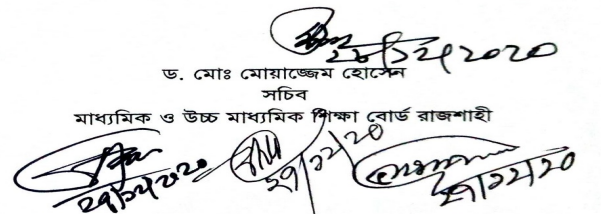 ২৮/১২/২০২০
ড. মোঃ মোয়াজ্জেম হোসেন
সচিব
মাধ্যমিক ও উচ্চ মাধ্যমিক শিক্ষা বোর্ড রাজশাহী
২৭/১২/২০২০
২৭/১২/২০
২৭/১২/২০